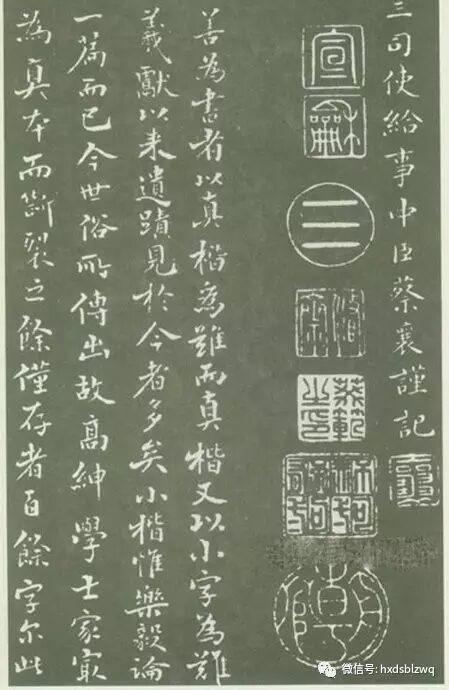 三司使給事中臣蔡襄謹記
宣
龢
善為書者以真楷為難而真楷又以小字為難
羲獻以来遺蹟見於今者多矣小楷惟樂毅論
一篇而已今世俗所傳出故高紳學士家最
為真本而斷裂之餘僅存者百餘字尔此
微信号: hxdsblzwq